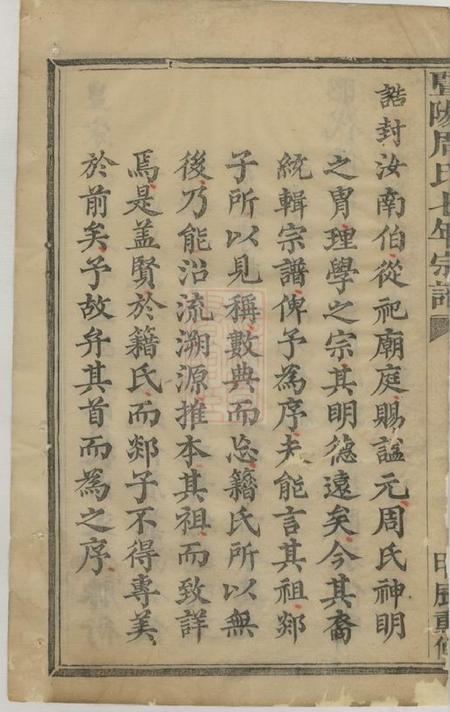 暨陽周氏七年宗譜
誥封汝南伯從祀廟庭賜謚元周氏神明
之胄理學之宗其明德遠矣今其裔
統輯宗譜俾予為序夫能言其祖郯
子所以見稱數典而忘籍氏所以無
後乃能沿流溯源推本其祖而致詳
焉是盖賢於籍氏而郯子不得專美
於前矣予故弁其首而為之序